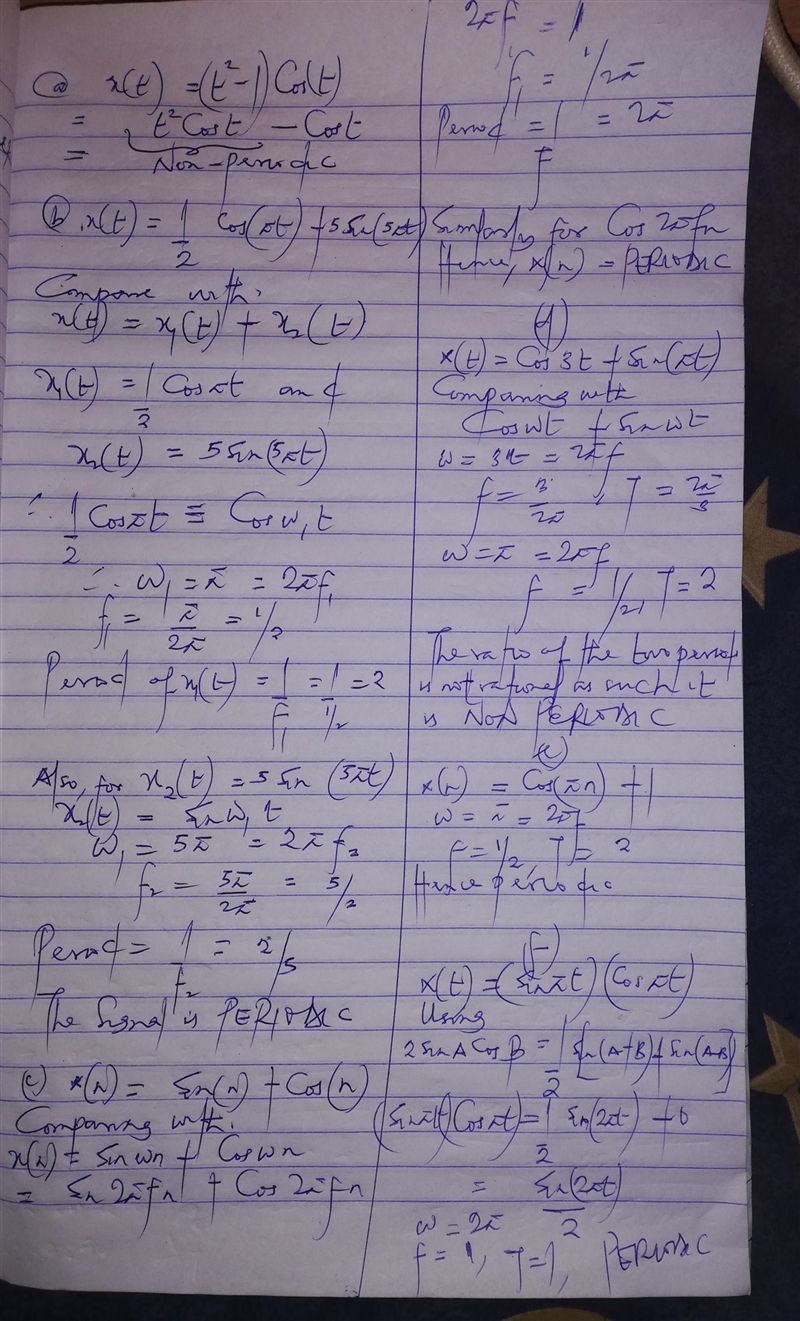 (a) x(t) = (t²-1) Cos(t)
= t² Cos t - Cos t
= Non-periodic
(b) x(t) = 1/2 Cos(πt) + 5 Sin(5πt)
Compare with.
x(t) = x₁(t) + x₂(t)
x₁(t) = 1/2 Cos πt and
x₂(t) = 5 Sin(5πt)
∴ 1/2 Cos πt ≡ Cos ω₁t
∴ ω₁ = π = 2πf₁
f₁ = π/2π = 1/2
Period of x₁(t) = 1/f₁ = 1/1/2 = 2
Also, for x₂(t) = 5 Sin (5πt)
x₂(t) = Sin ω₁ t
ω₁ = 5π = 2πf₂
f₂ = 5π/2π = 5/2
Period = 1/f₂ = 2/5
The Signal is PERIODIC
(c) x(n) = Sin(n) + Cos(n)
Comparing with.
x(n) = Sin ωn + Cos ωn
= Sin 2πfn + Cos 2πfn
2πf = 1
f₁ = 1/2π
Period = 1/f = 2π
Similarly for Cos 2πfn
Hence, x(n) = PERIODIC
(d)
x(t) = Cos 3t + Sin(πt)
Comparing with
Cos ωt + Sin ωt
ω = 3t = 2πf
f = 3/2π, T = 2π/3
ω = π = 2πf
f = 1/2, T = 2
The ratio of the two period
is not rational as such it
is NON PERIODIC
(e)
x(n) = Cos(πn) + 1
ω = π = 2πf
f = 1/2, T = 2
Hence periodic
(f)
x(t) = (Sin πt)(Cos πt)
Using
2 Sin A Cos B = 1/2 [Sin(A+B) + Sin(A-B)]
(Sin πt)(Cos πt) = 1/2 Sin(2πt) + 0
= Sin(2πt)/2
ω = 2π
f = 1, T = 1, PERIODIC